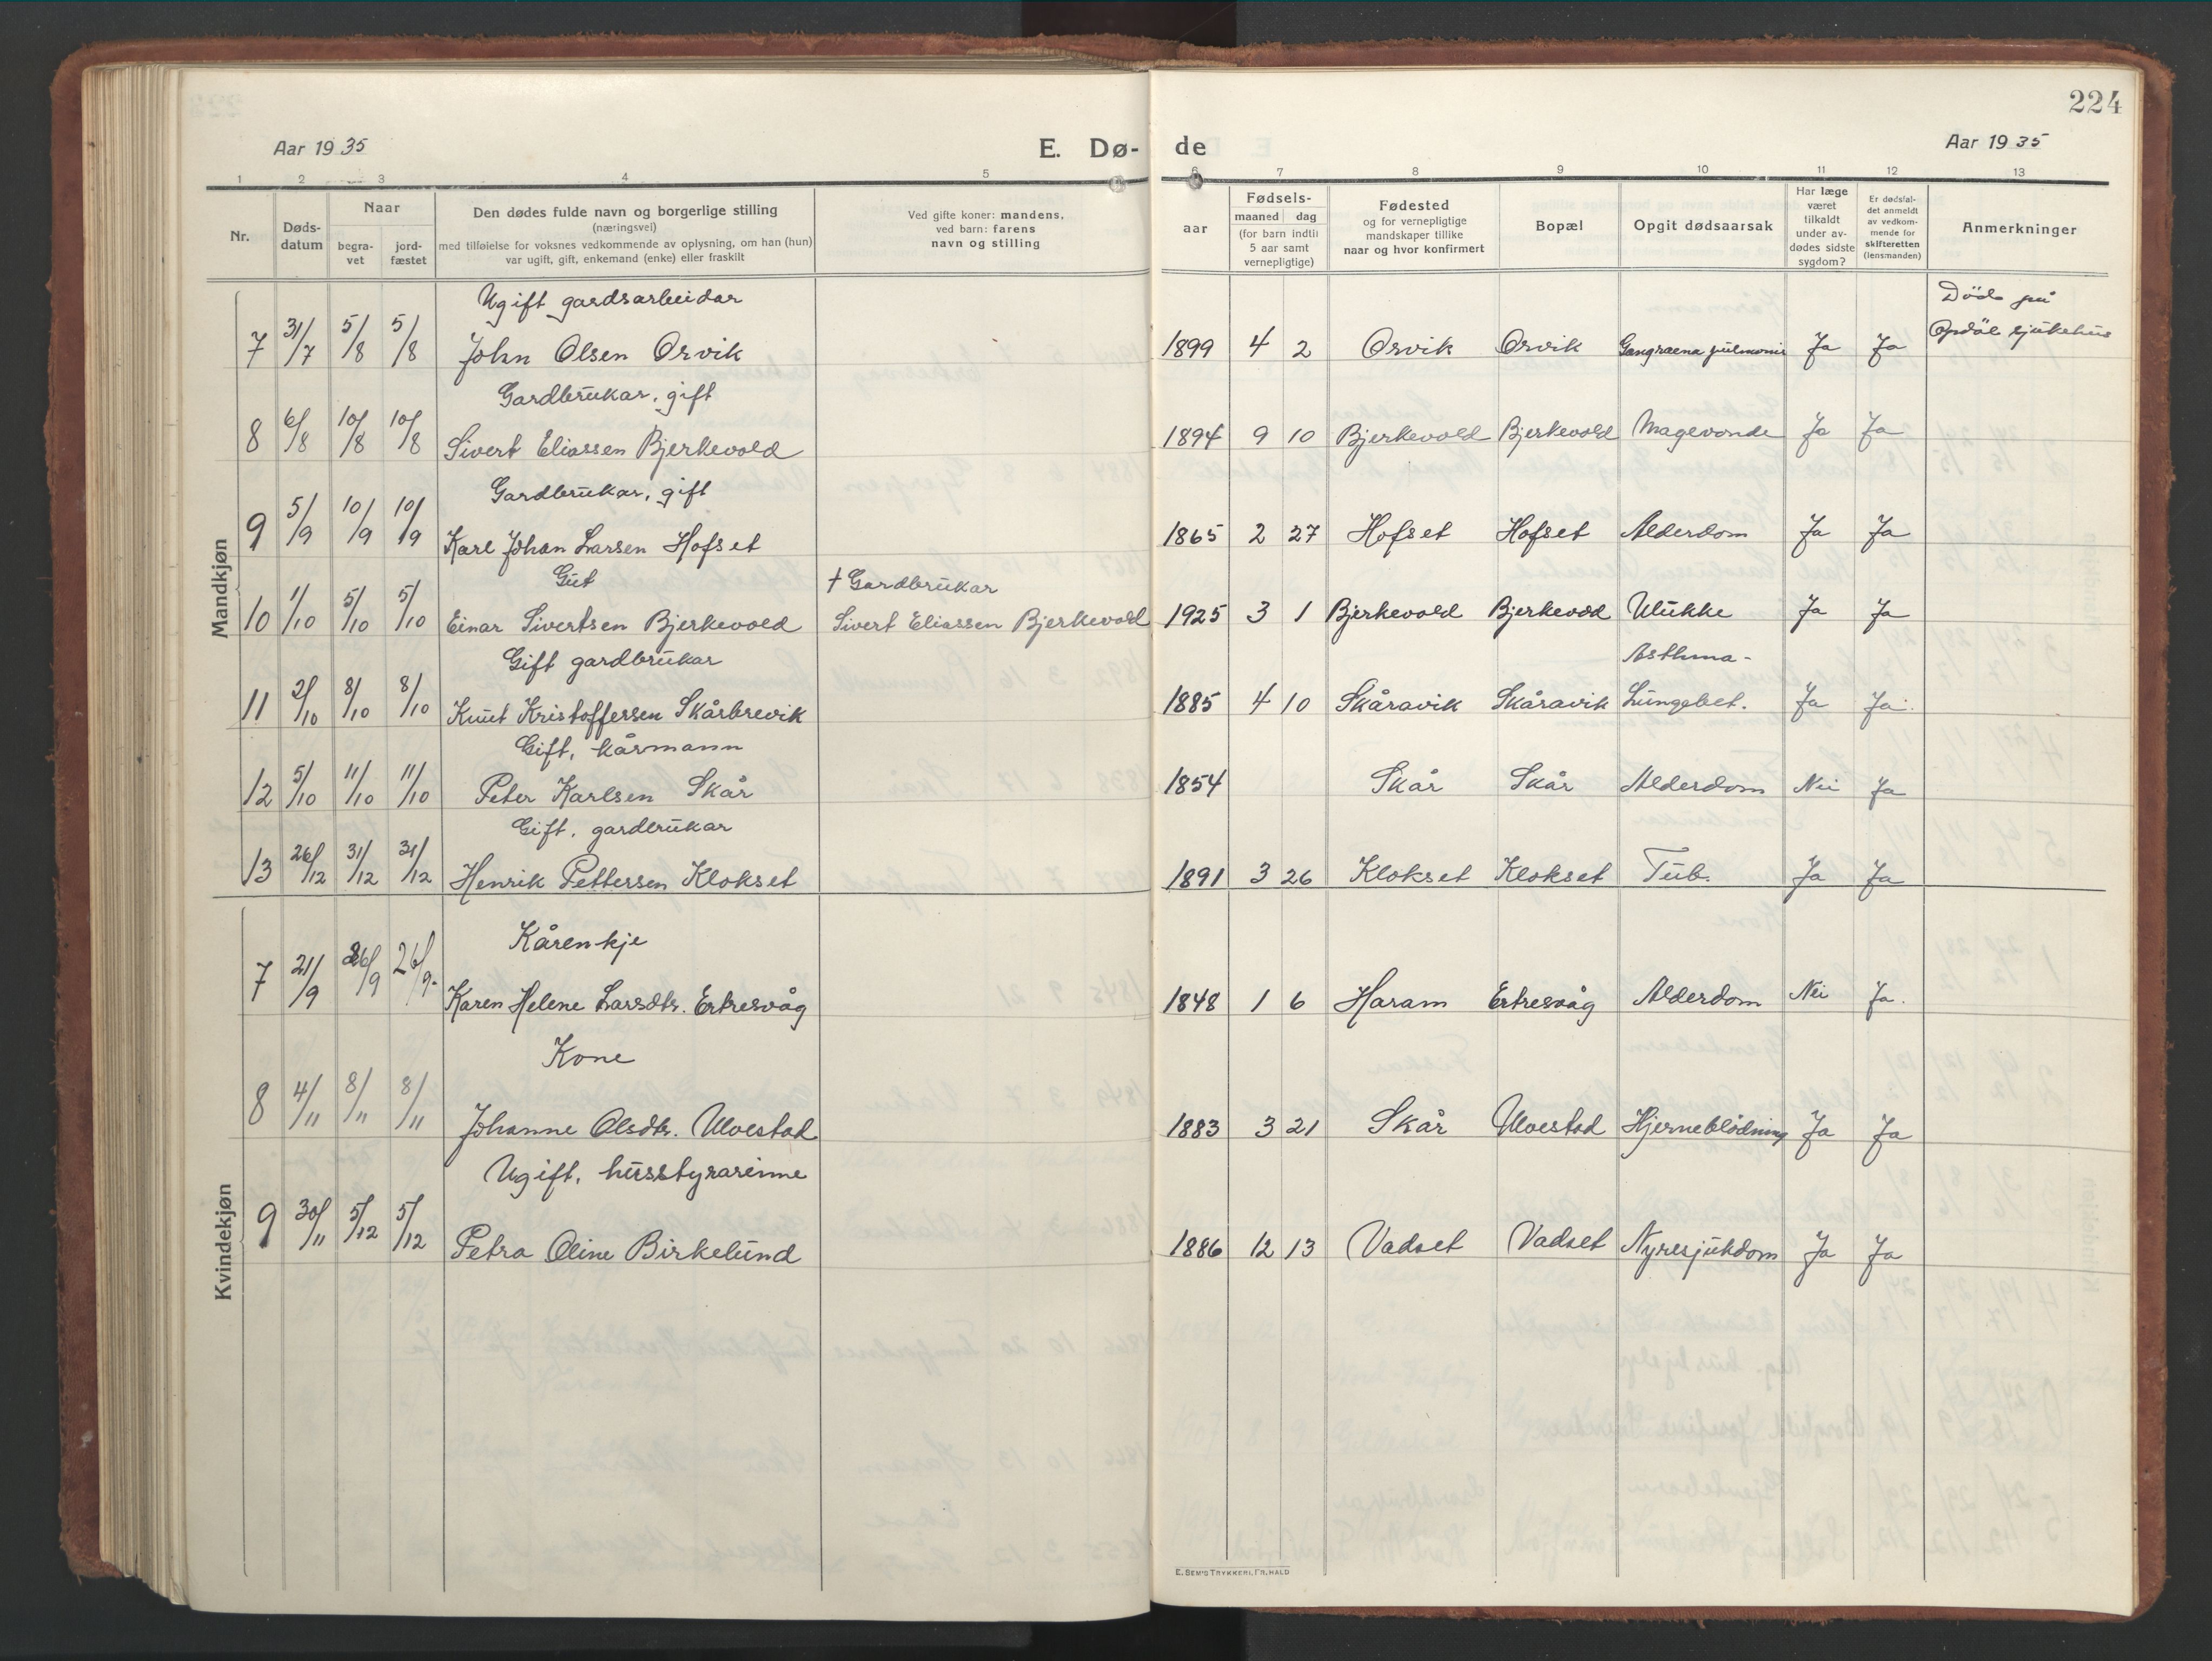 224
Aar 1935
E. Dø-
de
Aar 1935
1 2 3 4 5 6 7 8 9 10 11 12 13
Nr.
Døds-
datum
Naar
begra-
vet
jord-
fæstet
Den dødes fulde navn og borgerlige stilling
(næringsvei)
med tilføielse for voksnes vedkommende av oplysning, om han (hun)
var ugift, gift, enkemand (enke) eller fraskilt
Ved gifte koner: mandens,
ved barn: farens
navn og stilling
aar
Fødsels-
maaned dag
(for barn indtil
5 aar samt
vernepligtige)
Fødested
og for vernepligtige
mandskaper tillike
naar og hvor konfirmert
Bopæl
Opgit dødsaarsak
Har læge
været
tilkaldt
under av-
dødes sidste
sygdom?
Er dødsfal-
det anmeldt
av vedkom-
mende for
skifteretten
(lensmanden)
Anmerkninger
Mandkjøn
Ugift gardsarbeidar
Död på
7 31/7 5/8 5/8 John Olsen Orvik 1899 4 2 Orvik Orvik Gangraena pulmonis Ja Ja Opdöl sjukehus
Gardbrukar, gift
8 6/8 10/8 10/8 Sivert Eliassen Bjerkevold 1894 9 10 Bjerkevold Bjerkevold Magevonde Ja Ja
Gardbrukar, gift
9 5/9 10/9 10/9 Karl Johan Larsen Hofset 1865 2 27 Hofset Hofset Alderdom Ja Ja
Gut † Gardbrukar
10 1/10 5/10 5/10 Einar Sivertsen Bjerkevold Sivert Eliassen Bjerkevold 1925 3 1 Bjerkevold Bjerkevold Ulukke Ja Ja
Gift gardbrukar Asthma-
11 2/10 8/10 8/10 Knut Kristoffersen Skårbrevik 1885 4 10 Skåravik Skåravik Lungebet. Ja Ja.
Gift, kårmann
12 5/10 11/10 11/10 Peter Karlsen Skår 1854 Skår Skår Alderdom Nei Ja
Gift, gardbrukar
13 26/12 31/12 31/12 Henrik Pettersen Klokset 1891 3 26 Klokset Klokset Tub. Ja Ja
Kvindekjøn
Kårenkje
7 21/9 26/9 26/9. Karen Helene Larsdtr. Ertresvåg 1848 1 6 Haram Ertresvåg Alderdom Nei Ja.
Kone
8 4/11 8/11 8/11 Johanne Olsdtr. Ulvestad 1883 3 21 Skår Ulvestad Hjerneblødning Ja Ja
Ugift, husstyrarinne
9 30/11 5/12 5/12 Petra Oline Birkelund 1886 12 13 Vadset Vadset Nyresjukdom Ja Ja
E. SEM'S TRYKKERI, FR.HALD